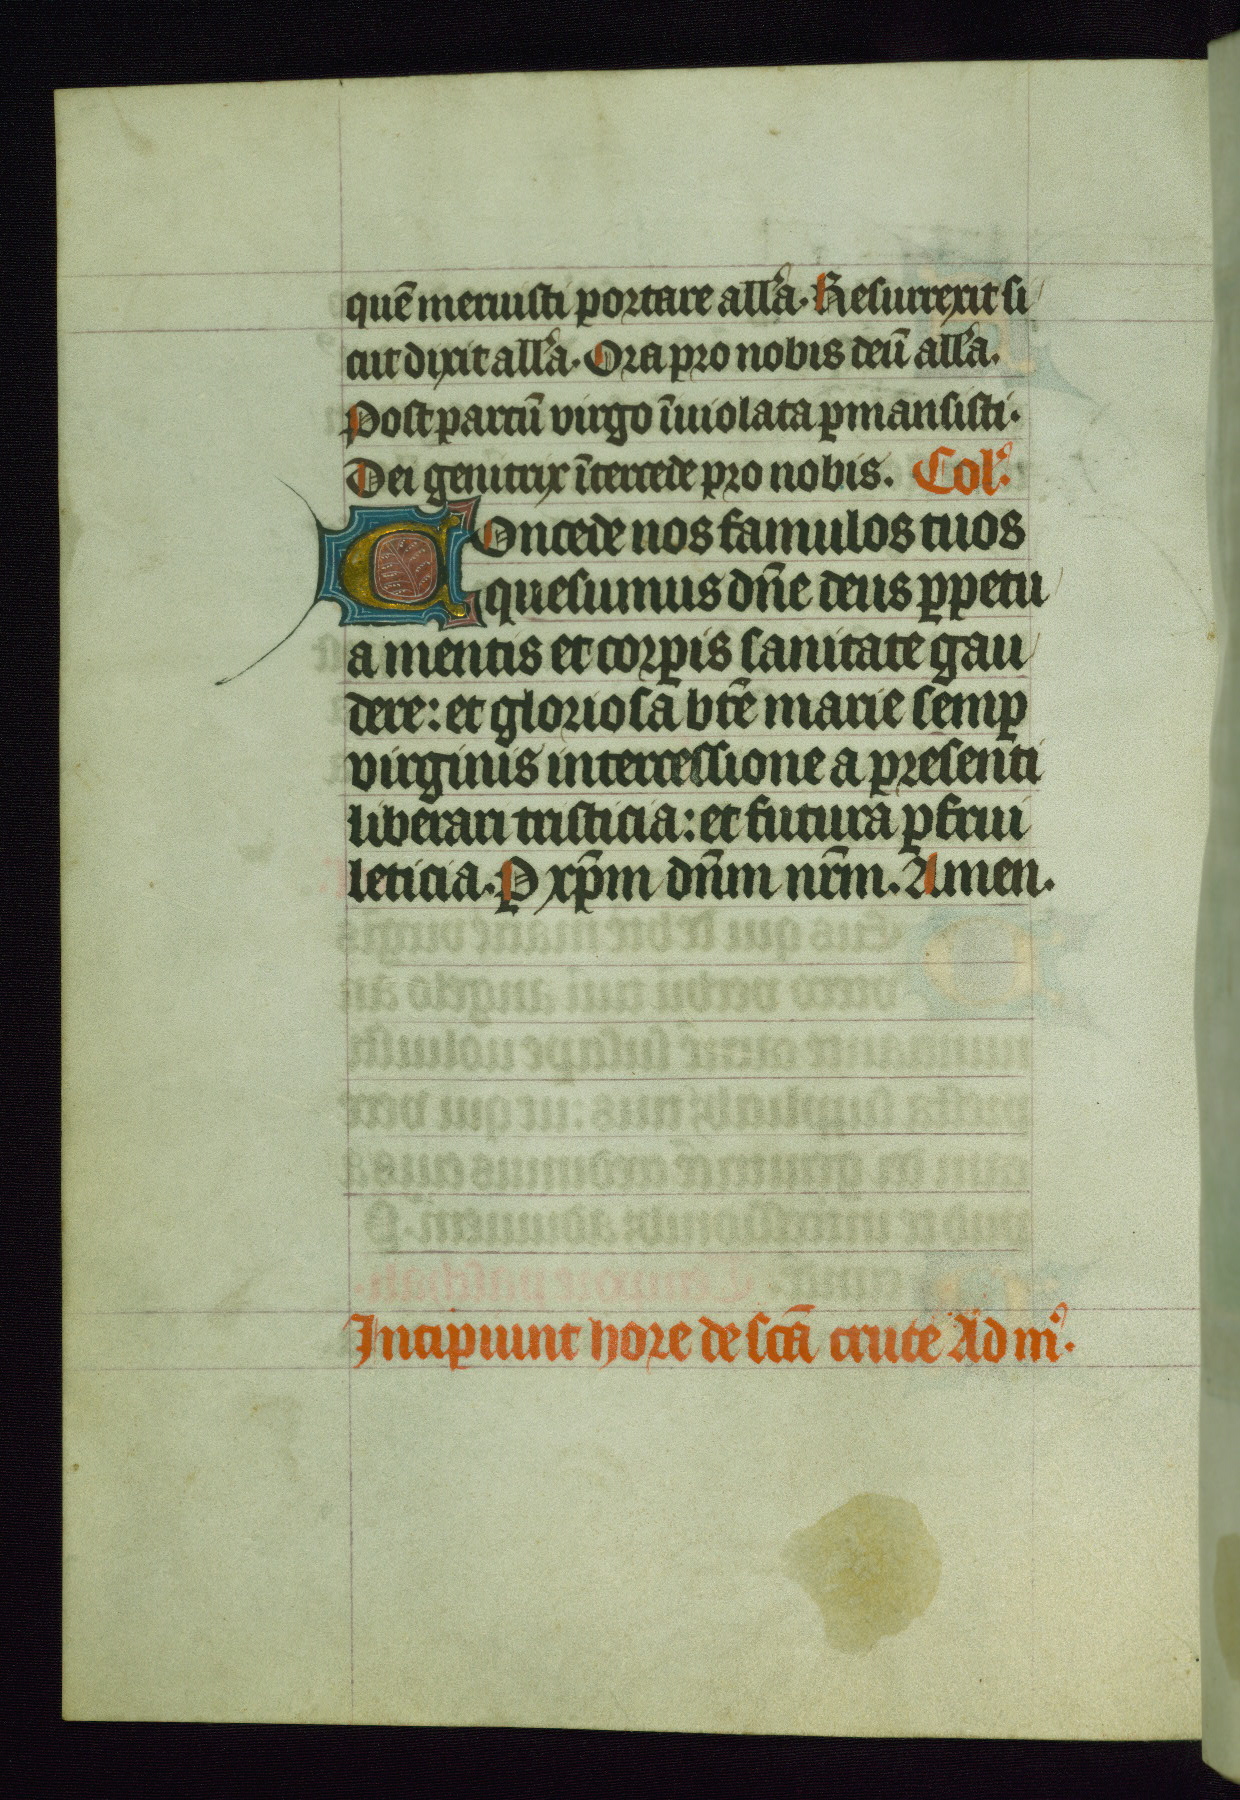 quē meruisti portare all'a. Resurrexit si
cut dixit all'a. Ora pro nobis deū all'a.
Post partū virgo īuiolata ꝑmansisti.
Dei genitrix ītercede pro nobis. Col'.
Concede nos famulos tuos
quesumus dn̄e deus ꝑpetu
a mentis et corꝑis sanitate gau
dere: et gloriosa bt̄e marie semꝑ
virginis intercessione a presenti
liberari tristicia: et futura ꝑfrui
leticia. P xp̄m dn̄m nr̄m. Amen.
Incipiunt hore de sc̄a cruce Ad m'.